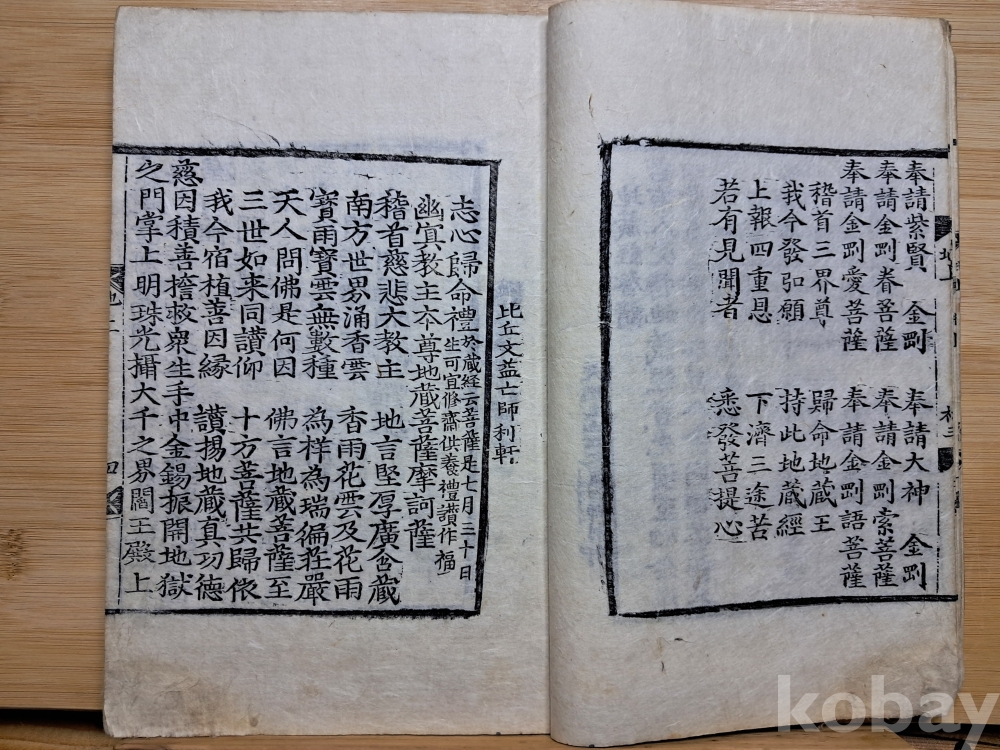 奉請紫賢 金剛 奉請大神 金剛
奉請金剛眷菩薩 奉請金剛索菩薩
奉請金剛愛菩薩 奉請金剛語菩薩
稽首三界尊 歸命地蔵王
我今發弘願 持此地蔵經
上報四重恩 下濟三途苦
若有見聞者 悉發菩提心
比丘文益亡師利軒
志心歸命禮 於蔵経云菩薩是七月三十日
生可宜修齋供養禮讃作福
幽冥教主本尊地蔵菩薩摩訶薩
稽首慈悲大教主 地言堅厚廣含蔵
南方世界涌香雲 香雨花雲及花雨
寶雨寶雲無數種 為祥為瑞徧莊嚴
天人問佛是何因 佛言地蔵菩薩至
三世如来同讃仰 十方菩薩共歸依
我今宿植善因縁 讃揚地蔵真功德
慈因積善擔救衆生手中金錫振開地獄
之門掌上明珠光攝大千之界閻王殿上
地上
四
kobay